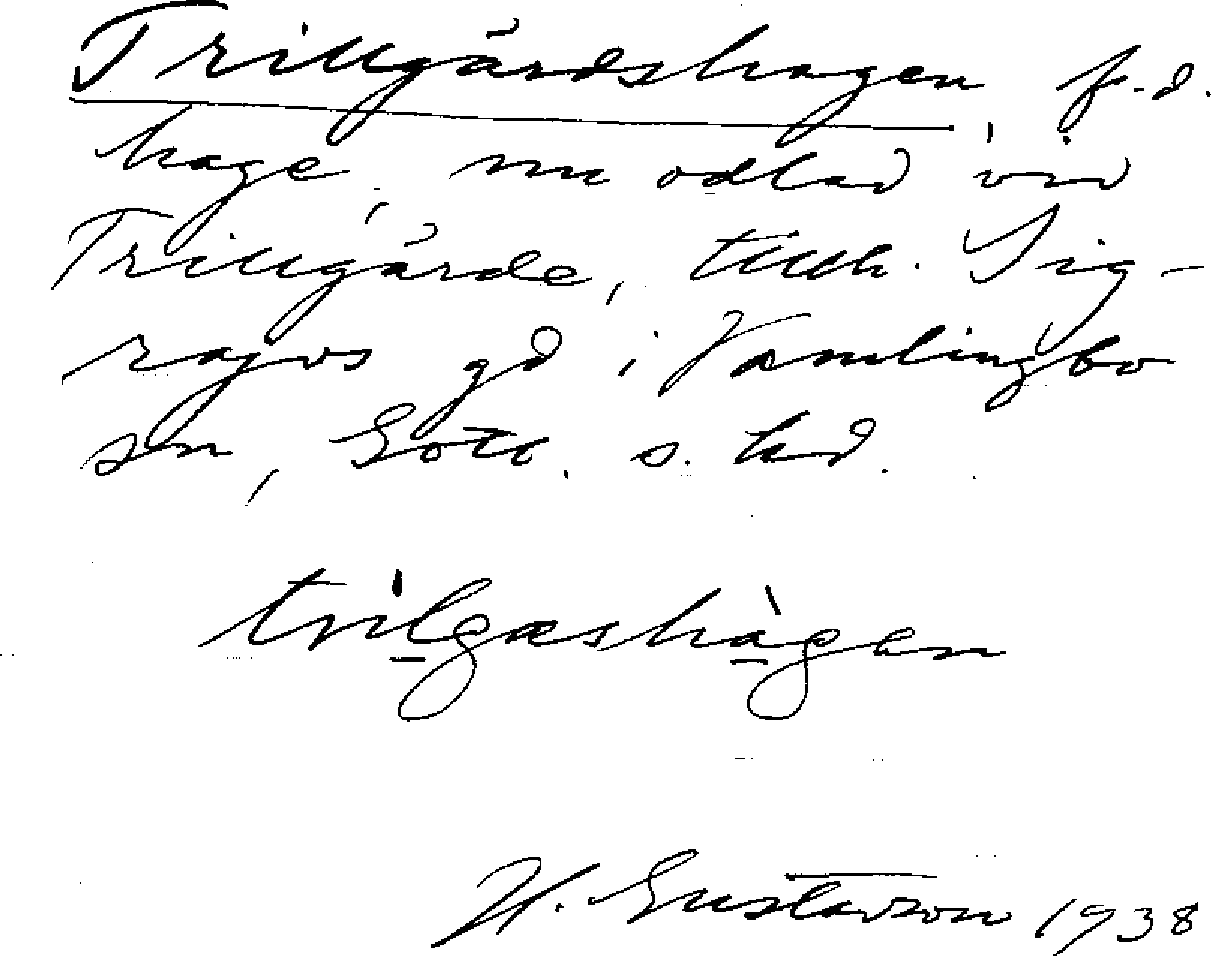 Trillgårdshagen, f.d.
hage, nu odlad vid
Trillgårde, tillh. Sig-
rajvs gd i Vamlingbo
sn, Gotl. s. hd.
trilgæshagen
H. Gustavson 1938